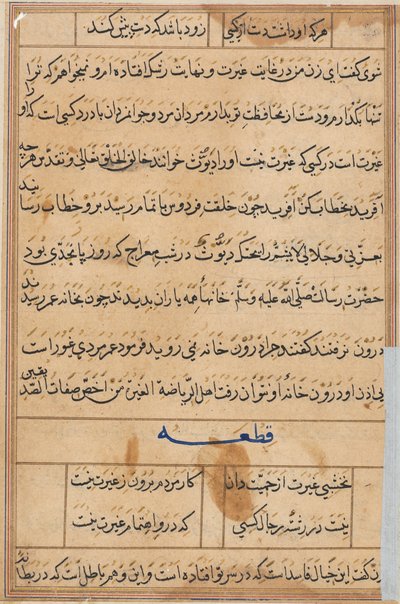 هر که او داشت دست از کسی زود باشد که دست پیش کند
شوی گفت ای زن مرد در غایت غیرت و نهایت رشک افتاده ام و نمیخواهم که ترا
تنها بگذارم و دست از محافظت تو بدارم مردان مرد و جوانمردان با درد کسی است که او
غیرت است در کسی که غیرت نیست او را دیوث خوانند خالق الخلق تعالی و تقدس هر چه
آفرید بخطاب کن آفرید چون خلقت فردوس باتمام رسید برو خطاب رسانید
بعزتی و جلالی لا یدخلک دیوث در شب معراج که روز بود
حضرت رسالت صلی الله علیه و سلم خانهاء همه یاران بدید چون بخانه عمر رسید
درون نرفت گفتند چرا درون خانه نمی روید فرمود عمر مردی غیور است
بی اذن او درون خانه او نتوان رفت اهل الریاضة الغیرة من اخص صفات الصدیقین
قطعه
نخشبی غیرت از حمیت دان کار مردم برون ز غیرت نیست
نیست در رشته رجال کسی که درو اهتمام غیرت نیست
زن گفت این خیال فاسد است که در سر تو افتاده است و این وهم باطل است که در